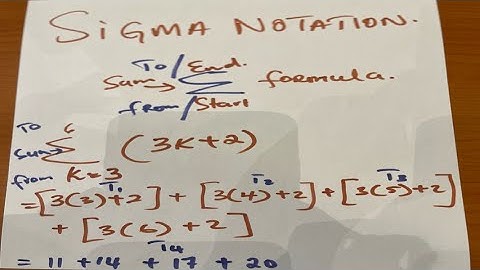 SiGMA NOTATION.
To/End.
Sum → Σ formula.
from/Start
To 6
Sum→ Σ (3K+2)
from K=3
T1 T2 T3
=[3(3)+2] + [3(4)+2]+[3(5)+2]
+ [3(6)+2]
T4
= 11 +14 +17 +20